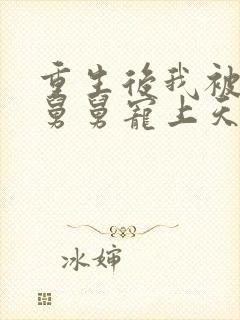 重生後我被
舅舅寵上天
冰婶